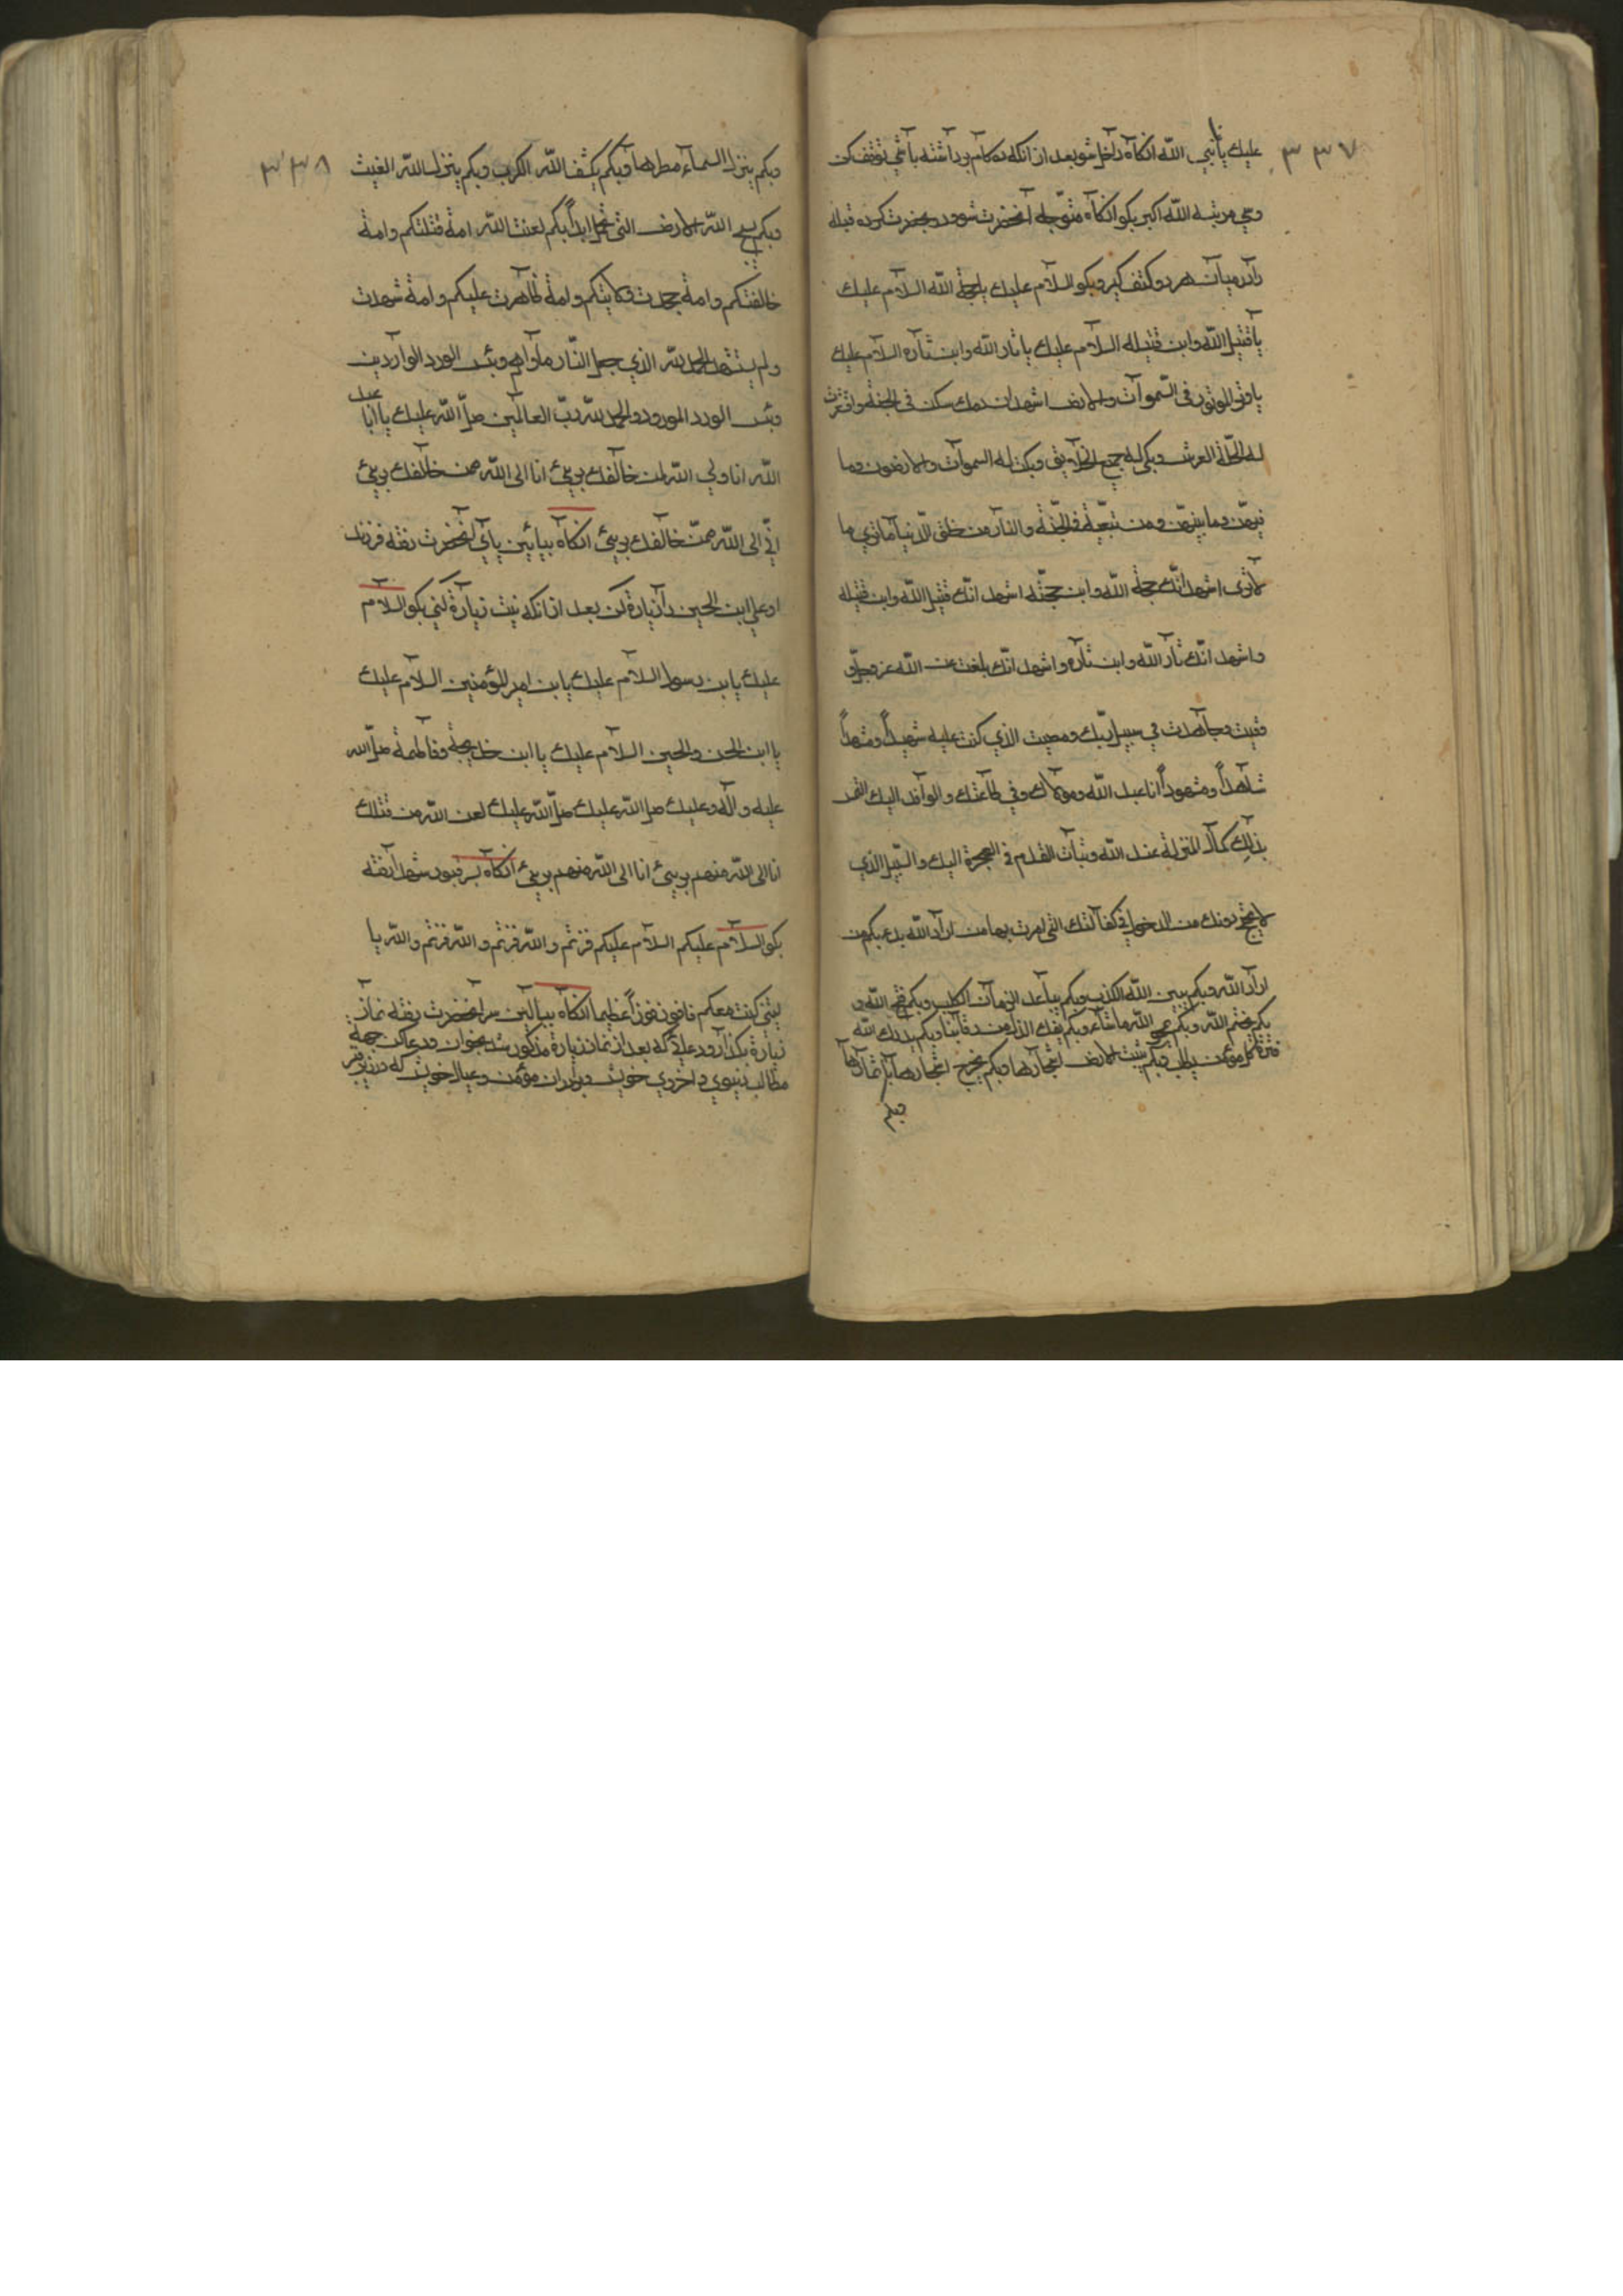 ٣٣٧
عليك يا نبي الله انكاه داخل شو بعد از انكه ده كام برداشته باشي توقف كن
وسي مرتبه الله اكبر بكو انكاه متوجه آنحضرت شو ورو بحضرت كرده قبله
را در ميان هر دو كتف كير وبكو السلام عليك يا حجة الله السلام عليك
يا قتيل الله وابن قتيله السلام عليك يا ثار الله وابن ثاره السلام عليك
يا وتر الله الموتور في السموات والارض اشهد ان دمك سكن في الجنة واقشعرت
له اظلة العرش وبكى له جميع الخلايق وبكت له السموات والارضون وما
فيهن وما بينهن ومن في الجنة والنار من خلق ربنا ما يرى وما
لا يرى اشهد انك حجة الله وابن حجته اشهد انك قتيل الله وابن قتيله
واشهد انك ثار الله وابن ثاره واشهد انك بلغت عن الله عز وجل و
وفيت وجاهدت في سبيل ربك ومضيت الذي كنت عليه شهيداً ومستشهداً
شاهداً ومشهوداً انا عبد الله ومولاك وفي طاعتك والوافد اليك التمس
بذلك كمال المنزلة عند الله وثبات القدم في الهجرة اليك والسبيل الذي
لا يختلج دونك من الدخول في كفالتك التي امرت بها من اراد الله بدء بكم من
اراد الله وبكم يبين الله الكذب وبكم يباعد الزمان الكلب وبكم فتح الله و
بكم يختم الله وبكم يمحو الله ما شاء وبكم يفك الذل من رقابنا وبكم يدرك الله
ترة كل مؤمن يطلب وبكم تنبت الارض اشجارها وبكم يخرج اشجارها اثمارها
وبكم
٣٣٨
وبكم ينزل السماء مطرها وبكم يكشف الله الكرب وبكم ينزل الله الغيث
وبكم يسبح الله الارض التي تحمل ابدانكم لعنت الله امة قتلتكم وامة
خالفتكم وامة جحدت ولايتكم وامة ظاهرت عليكم وامة شهدت
ولم يستشهد الحمد لله الذي جعل النار ماواهم وبئس الورد الواردين
وبئس الورد المورود والحمد لله رب العالمين صلى الله عليك يا ابا عبد
الله انا ولي الله لمن خالفك بريئ انا الى الله ممن خالفك بريئ
اني الى الله ممن خالفك بريئ انكاه بپائين پاي آنحضرت رفته فرزند
او علي ابن الحسين را زيارة كن بعد از انكه نيت زيارة كني بكو السلام
عليك يا بن رسول السلام عليك يا بن امير المؤمنين السلام عليك
يا ابن الحسن والحسين السلام عليك يا ابن خديجة وفاطمة صلى الله
عليه وآله وعليك صلى الله عليك صلى الله عليك لعن الله من قتلك
انا الى الله منهم بريئ انا الى الله منهم بريئ انكاه بر قبور شهدا رفته
بكو السلام عليكم السلام عليكم فزتم والله فزتم والله فزتم والله يا
ليتني كنت معكم فافوز فوزاً عظيما انكاه ببالين سر آنحضرت رفته نماز
زيارة بكذار ودعائي كه بعد از نماز زيارة مذكور شد بخوان ودعا كن جهة
مطالب دنيوي واخروي خويش وبرادران مؤمن وعيال خويش كه